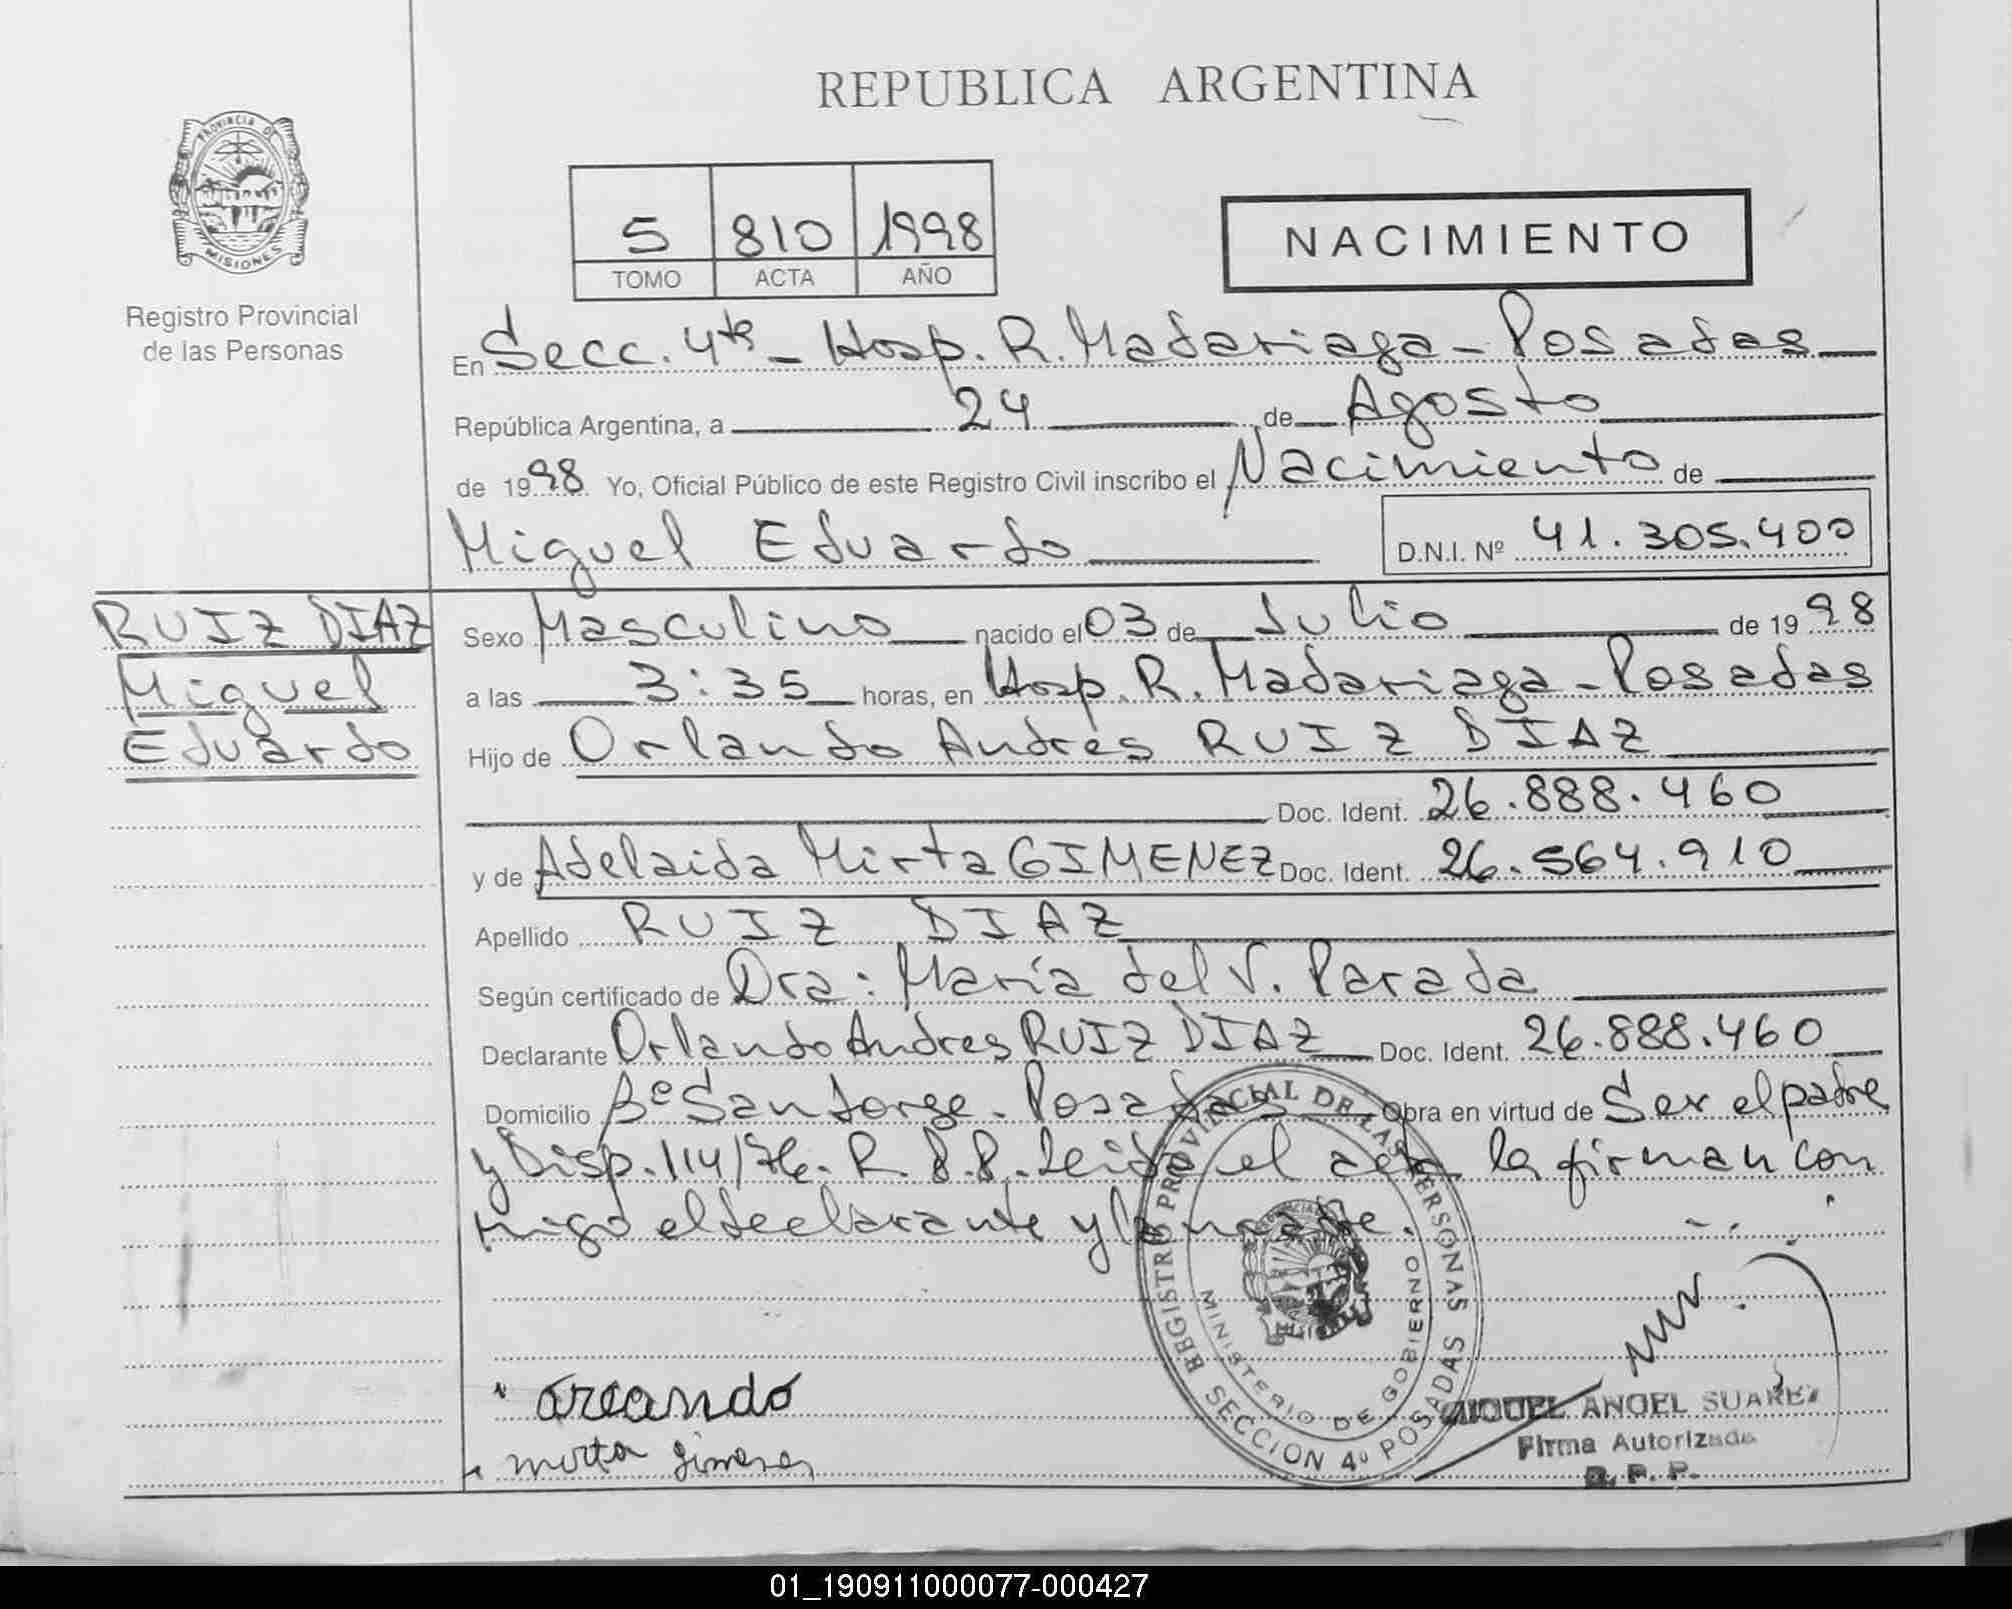 REPUBLICA ARGENTINA
PROVINCIA DE
MISIONES
Registro Provincial
de las Personas
5 810 1998
TOMO ACTA AÑO
NACIMIENTO
En Secc. 4ta - Hosp. R. Madariaga - Posadas
República Argentina, a 24 de Agosto
de 1998 Yo, Oficial Público de este Registro Civil inscribo el Nacimiento de
Miguel Eduardo D.N.I. Nº 41.305.400
RUIZ DIAZ
Miguel
Eduardo
Sexo Masculino nacido el 03 de Julio de 1998
a las 3:35 horas, en Hosp. R. Madariaga - Posadas
Hijo de Orlando Andrés RUIZ DIAZ
Doc. Ident. 26.888.460
y de Adelaida Mirta GIMENEZ Doc. Ident. 26.564.910
Apellido RUIZ DIAZ
Según certificado de Dra: María del V. Parada
Declarante Orlando Andres RUIZ DIAZ Doc. Ident. 26.888.460
Domicilio Bº San Jorge - Posadas Obra en virtud de Ser el padre
y Disp. 114/76. R. P. P. Leída el acta la firman con
migo el declarante y la madre.
REGISTRO PROVINCIAL DE LAS PERSONAS
MINISTERIO DE GOBIERNO
SECCION 4º POSADAS
orlando
mirta Jimenez
MIGUEL ANGEL SUAREZ
Firma Autorizada
R. P. P.
01_190911000077-000427